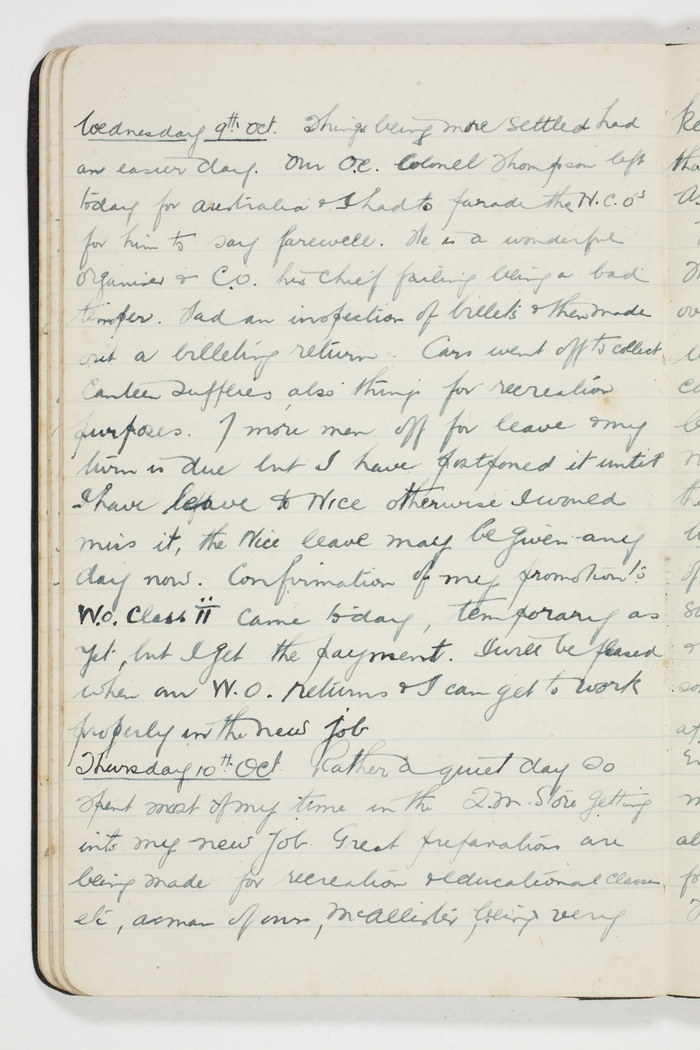 Wednesday 9th Oct. Things being more settled had
an easier day. Our O.C. Colonel Thompson left
today for Australia & I had to parade the N.C.O's
for him to say farewell. He is a wonderful
organiser & C.O. his chief failing being a bad
temper. Had an inspection of billets & then made
out a billeting return. Cars went off to collect
Canteen supplies, also things for recreation
purposes. 7 more men off for leave & my
turn is due but I have postponed it until
I have leave to Nice otherwise I would
miss it, the Nice leave may be given any
day now. Confirmation of my promotion to
W.O. Class II came today, temporary as
yet, but I get the payment. I will be pleased
when our W.O. returns & I can get to work
properly in the new job
Thursday 10th Oct. Rather a quiet day so
spent most of my time in the Q.M. Store getting
into my new job. Great preparations are
being made for recreation & educational classes
etc, a man of ours, McAllister being very